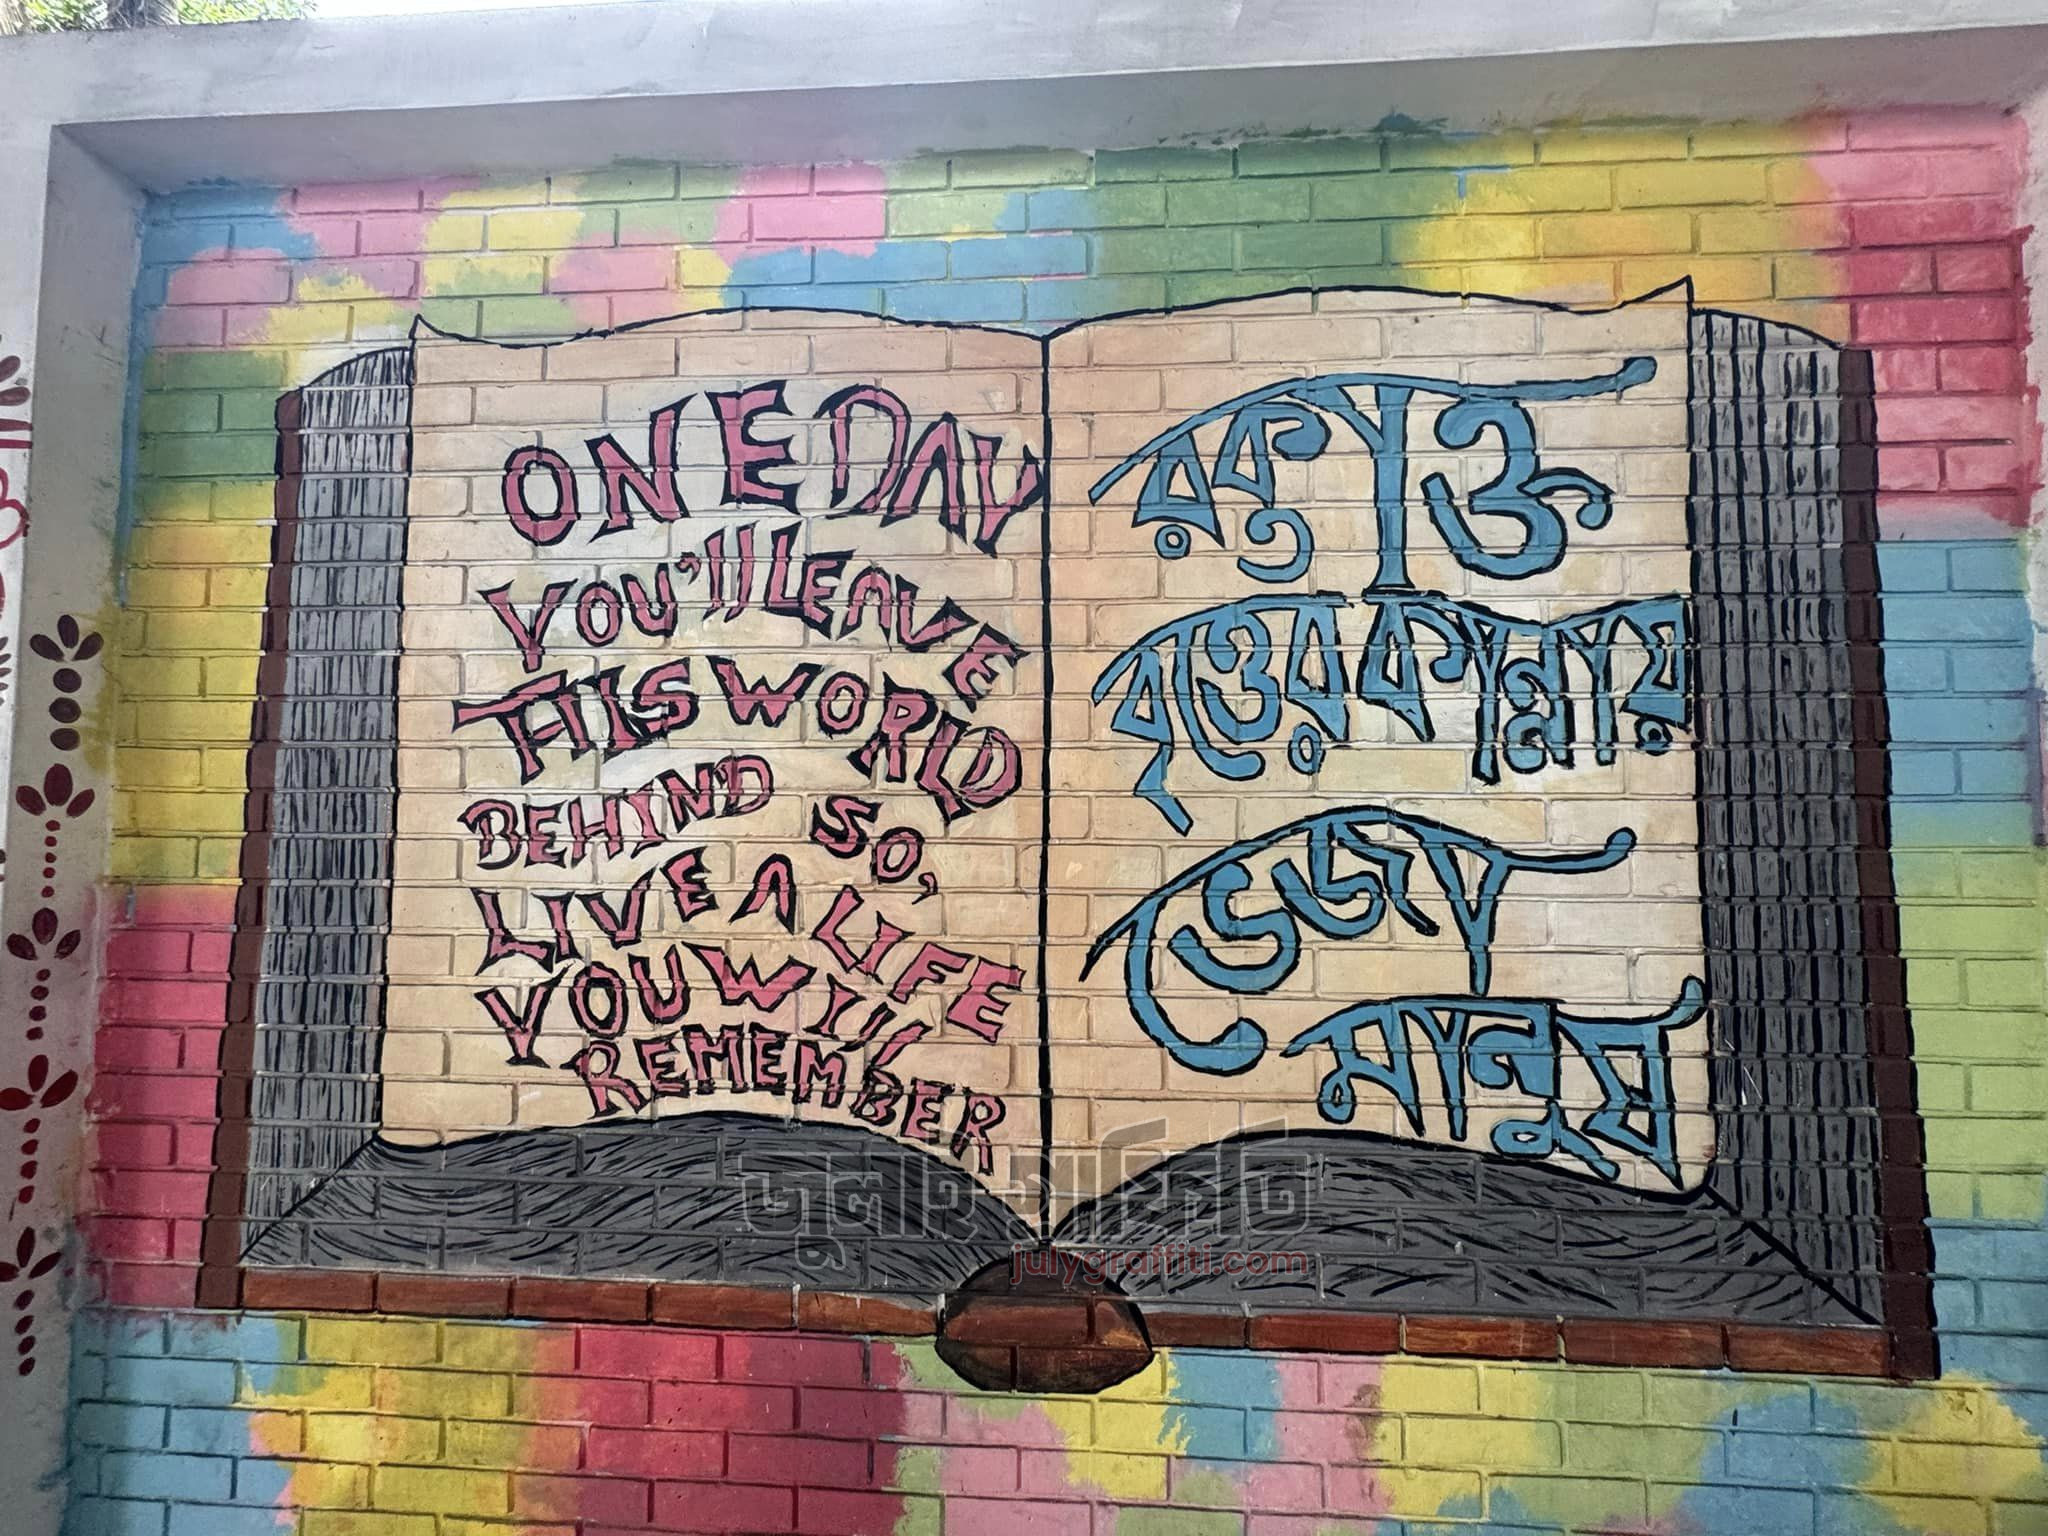 ONE DAY
YOU'll LEAVE
THIS WORLD
BEHIND SO,
LIVE A LIFE
YOU Will
REMEMBER
রক্তাক্ত
বৃত্তের কান্নায়
ভেজা
মানুষ
জুলাই গ্রাফিতি
julygraffiti.com